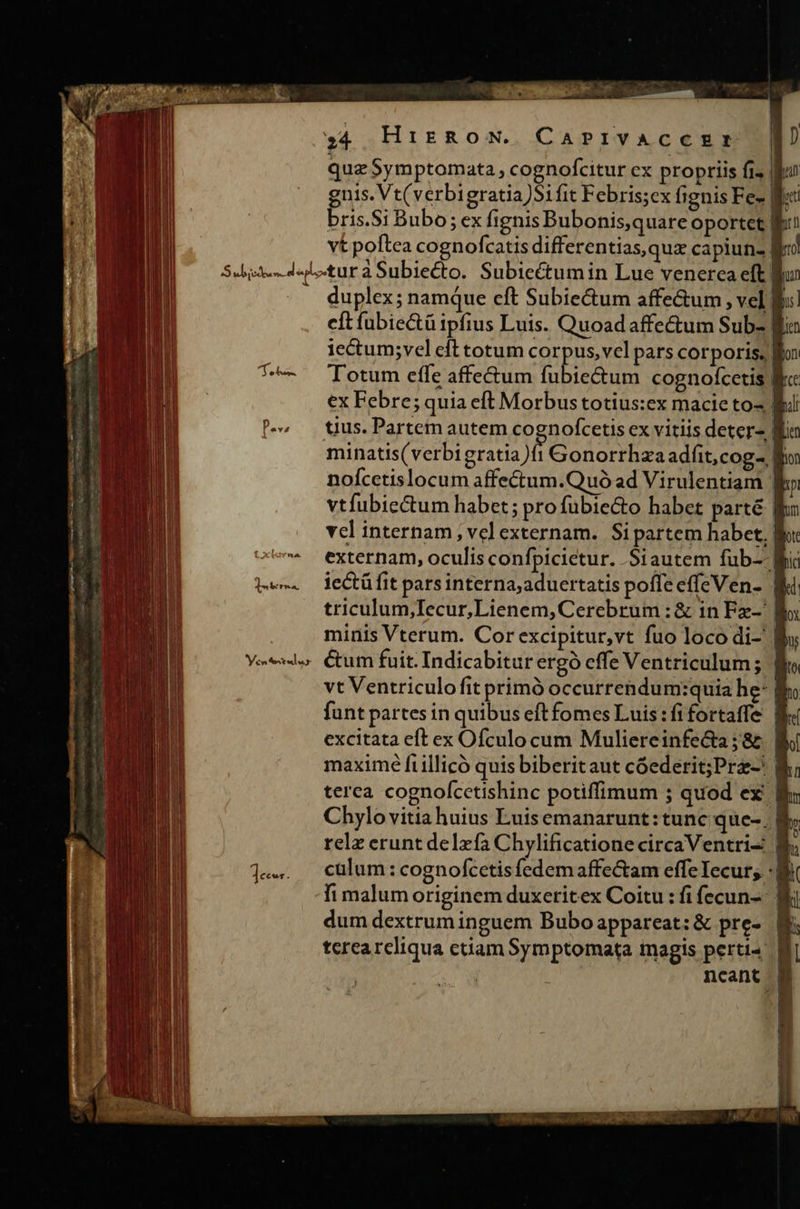 34 HIERON. CAPIVACCEI
quæ Symptomata, cognoſcitur ex propriis ſi-
gnis. Vt (verbi gratia) Si ſit Febris; ex ſignis Fe-
bris. Si Bubo; ex ſignis Bubonis, quare oportet
vt poſtea cognoſcatis differentias, quæ capiun-
Subiectum duplex
tur à Subiecto. Subiectum in Lue venerea eſt
duplex; namque eſt Subiectum affectum, vel
eſt ſubiectũ ipſius Luis. Quoad affectum Sub-
iectum; vel eſt totum corpus, vel pars corporis.
Totum
Totum eſſe affectum ſubiectum cognoſcetis
ex Febre; quia eſt Morbus totius: ex macie to-
Pars
tius. Partem autem cognoſcetis ex vitiis deter-
minatis (verbi gratia) ſi Gonorrhæa adſit, cog-
noſcetis locum affectum. Quò ad Virulentiam
vt ſubiectum habet; pro ſubiecto habet partẽ
vel internam, vel externam. Si partem habet,
Externa
externam, oculis conſpicietur. Si autem ſub-
Interna
iectũ ſit pars interna, aduertatis poſſe eſſe Ven-
triculum, Iecur, Lienem, Cerebrum: & in Fæ-
minis Vterum. Cor excipitur, vt ſuo loco di-
Ventriculus
ctum fuit. Indicabitur ergò eſſe Ventriculum;
vt Ventriculo ſit primò occurrendum: quia he
ſunt partes in quibus eſt fomes Luis: ſi fortaſſe
excitata eſt ex Oſculo cum Muliere infecta; &
maximè ſi illicò quis biberit aut cõederit; Præ-
terea cognoſcetis hinc potiſſimum; quod ex
Chylo vitia huius Luis emanarunt: tunc que-
relæ erunt de læſa Chylificatione circa Ventri-
Iecur.
culum: cognoſcetis ſedem affectam eſſe Iecur,
ſi malum originem duxerit ex Coitu: ſi ſecun-
dum dextrum inguem Bubo appareat: & pre-
terea reliqua etiam Symptomata magis perti-
neant